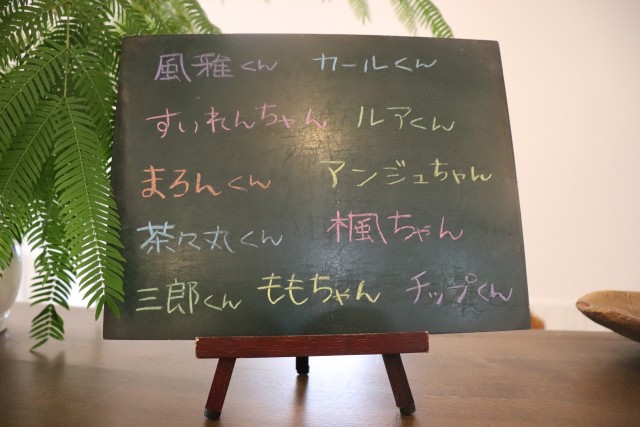 風雅くん カールくん
すいれんちゃん ルアくん
まろんくん アンジュちゃん
茶々丸くん 楓ちゃん
三郎くん ももちゃん チップくん